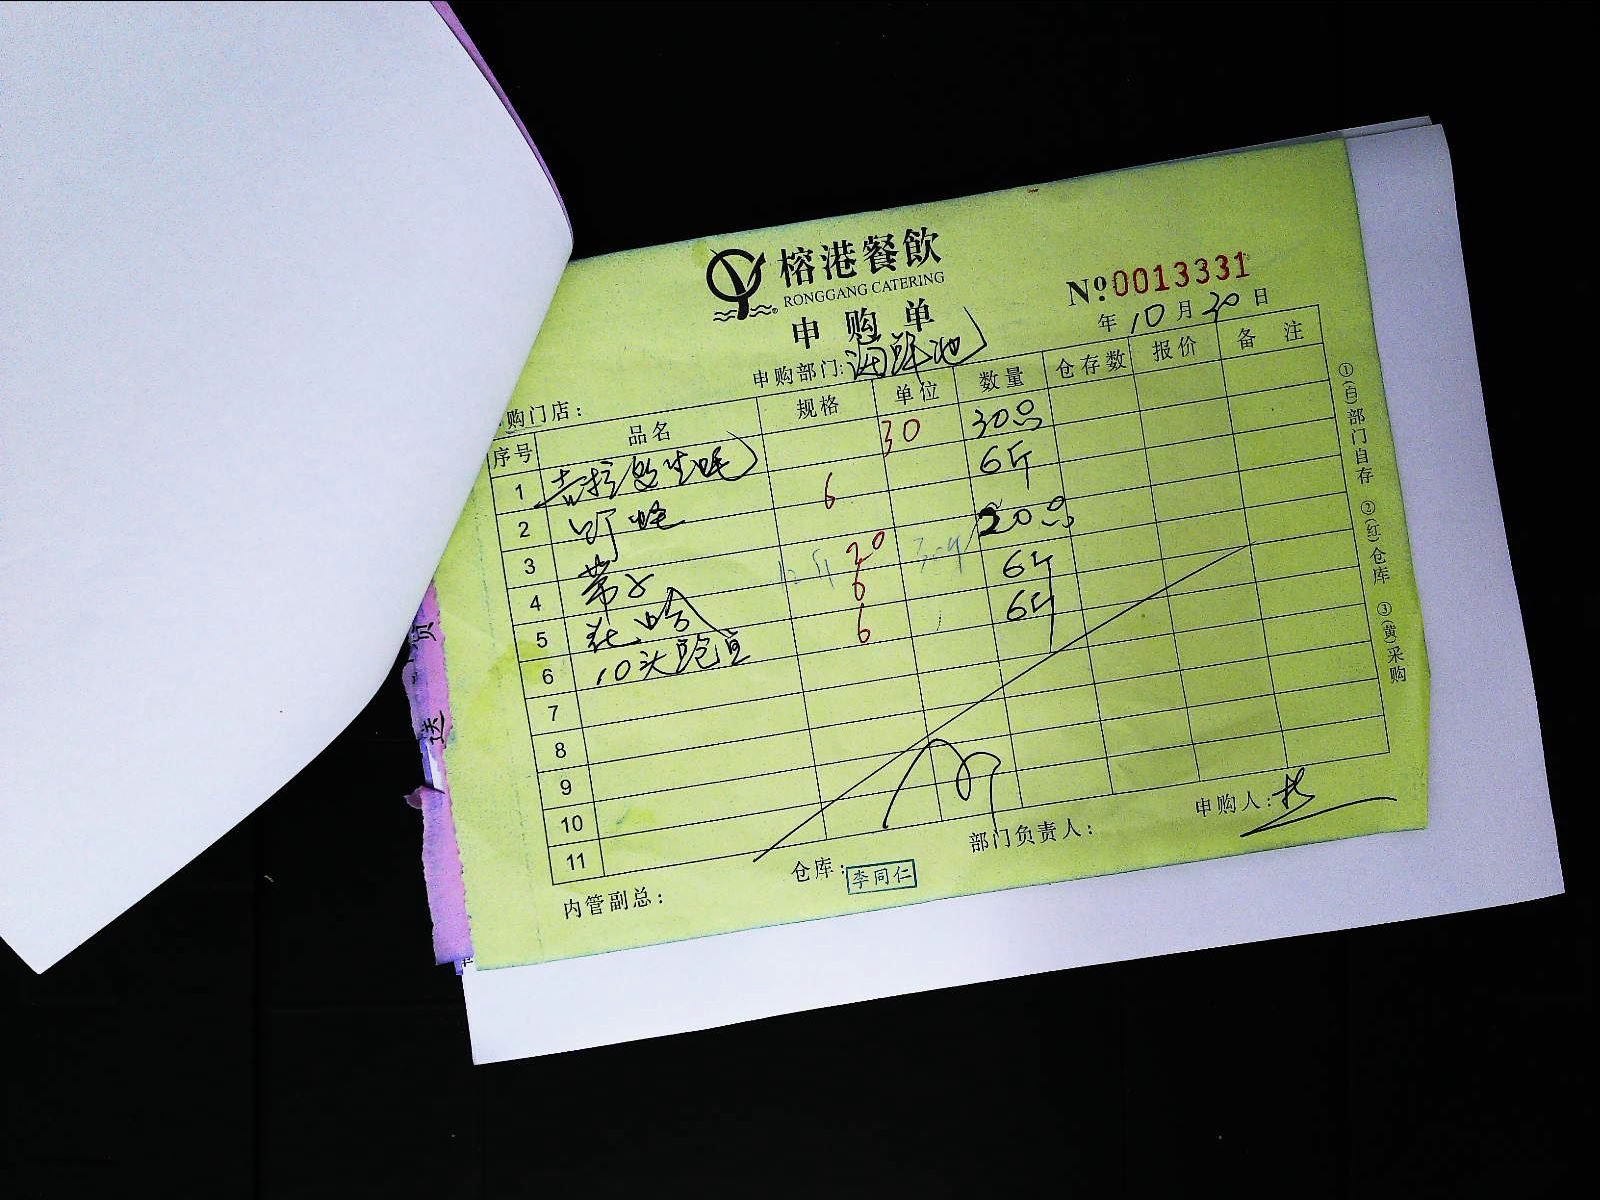 榕港餐飲
RONGGANG CATERING
申购单
№0013331
年 10 月 30 日
购门店:
申购部门: 海鲜池
序号 品名 规格 单位 数量 仓存数 报价 备注
1 吉拉多生蚝 30 30只
2 6 6斤
3 带子 20 20只
4 花哈 6 6斤
5 10头鲍鱼 6 6斤
6
7
8
9
10
11
内管副总:
仓库: 李同仁
部门负责人:
申购人:
①(白)部门自存 ②(红)仓库 ③(黄)采购